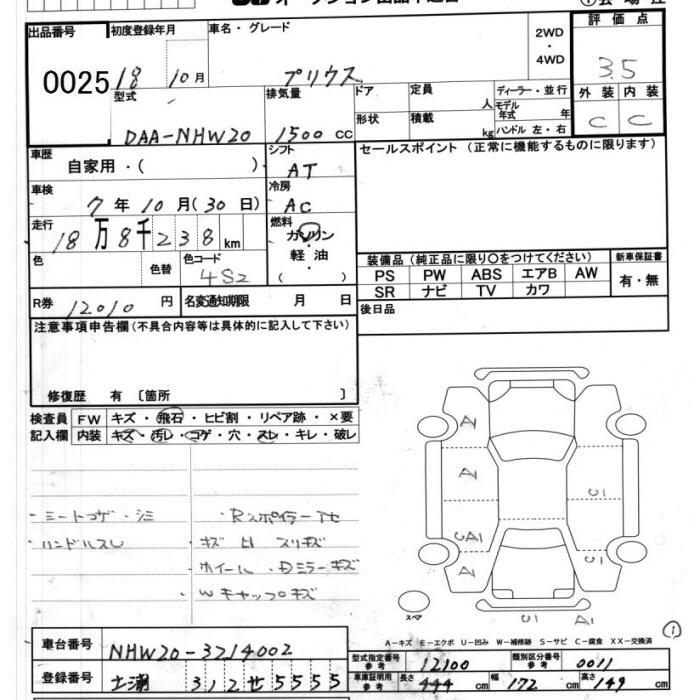 出品番号 初度登録年月 車名・グレード 2WD ・ 4WD 評価点
0025 18 10月 プリウス 3.5
型式 排気量 ドア 定員 人 ディーラー・並行 外装 内装
DAA-NHW20 1500 cc 形状 積載 kg モデル年式 年 ハンドル 左・右 C C
車歴 自家用・( ) シフト AT セールスポイント (正常に機能するものに限ります)
車検 7年10月(30日) 冷房 AC
走行 18万8千238km 燃料 ガソリン・軽油・( )
色 色替 色コード 4S2
装備品 (純正品に限り○をつけてください) 新車保証書
PS PW ABS エアB AW 有・無
SR ナビ TV カワ
R券 12010円 名変通知期限 月 日 後日品
注意事項申告欄 (不具合内容等は具体的に記入して下さい)
修復歴 有 〔箇所 〕
検査員 FW キズ・飛石・ヒビ割・リペア跡・×要
記入欄 内装 キズ・汚レ・コゲ・穴・スレ・キレ・破レ
シートコゲ・シミ Rスポイラーアセ
ハンドルスレ キズ H スリキズ
ホイール・Dミラーキズ
Wキャップキズ
A1
A1 U1
UA1
A1 U1
スペア U1 A1
①
A-キズ E-エクボ U-凹み W-補修跡 S-サビ C-腐食 XX-交換済
車台番号 NHW20-3214002 型式指定番号 参考 12100 類別区分番号 参考 0011
登録番号 土浦 312せ5555 車庫証明用 参考 長さ 444cm 幅 172cm 高さ 149cm